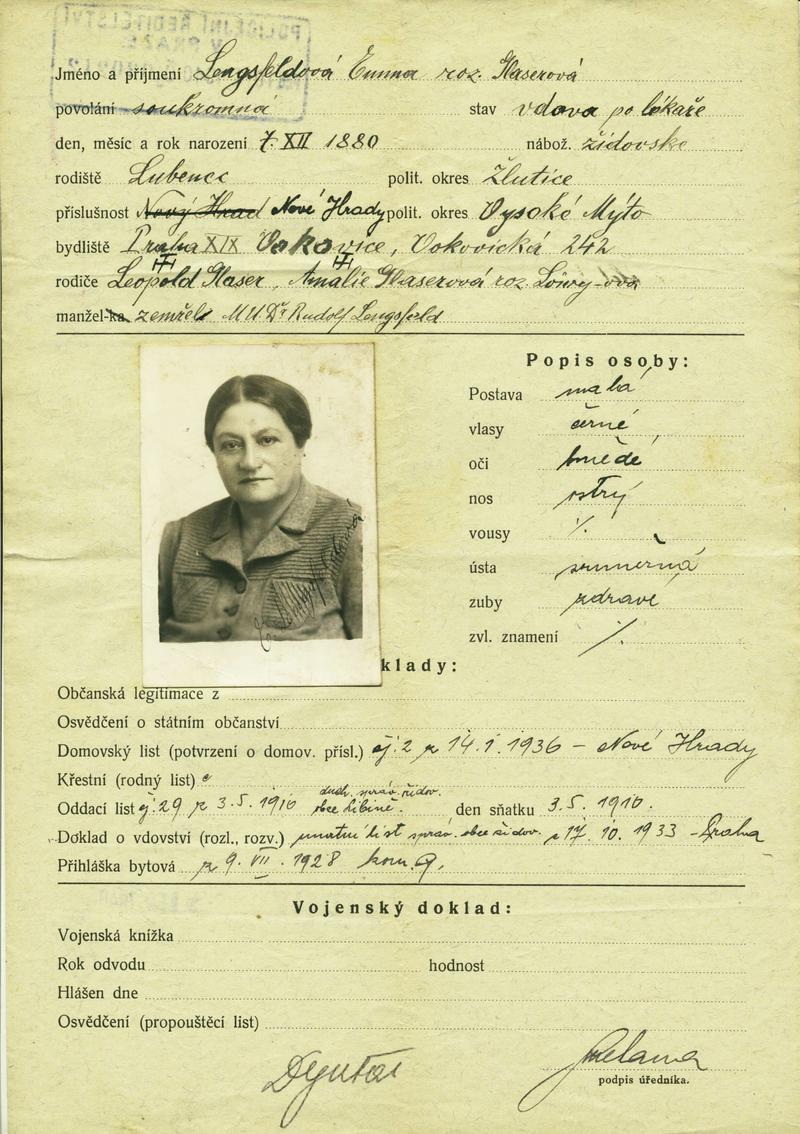 POLICEJNÍ ŘEDITELSTVÍ
V PRAZE
Jméno a příjmení Lengsfeldová Emma roz. Glaserová
povolání soukromná stav vdova po lékaře
den, měsíc a rok narození 7. XII 1880 nábož. židovske
rodiště Lubenec polit. okres Žlutice
příslušnost Nový Hrad Nové Hrady polit. okres Vysoké Mýto
bydliště Praha XIX Vokovice, Vokovická 242
rodiče Leopold Glaser, Amalie Glaserová roz. Löwy-ova
manžel-ka zemřel MUDr Rudolf Lengsfeld
Popis osoby:
Postava malá
vlasy černé
oči hnědé
nos ostrý
vousy /.
ústa souměrná
zuby zdravé
zvl. znamení /.
klady:
Občanská legitimace z
Osvědčení o státním občanství
Domovský list (potvrzení o domov. přísl.) čj: 2 z 14.1.1936 – Nové Hrady
Křestní (rodný list)
duch. správ. židov.
Oddací list č. 29 z 3.5.1910 obce Libině. den sňatku 3.5.1910.
Doklad o vdovství (rozl., rozv.) úmrtní list správ. obce židov. z 17.10.1933 - Praha
Přihláška bytová z 9. VII. 1928 kom. 9.
Vojenský doklad:
Vojenská knížka
Rok odvodu hodnost
Hlášen dne
Osvědčení (propouštěcí list)
podpis úředníka.